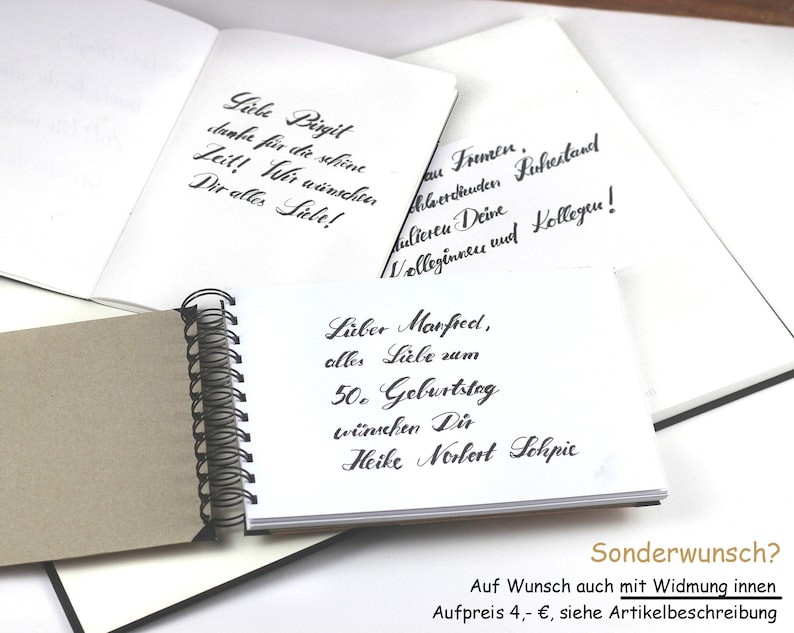 Liebe Birgit
danke für die schöne
Zeit! Wir wünschen
Dir alles Liebe!
Frumen,
Ruhestand
Deine
Kolleginnen und Kollegen!
Lieber Manfred,
alles Liebe zum
50. Geburtstag
wünschen Dir
Heike Norbert Sohpie
Sonderwunsch?
Auf Wunsch auch mit Widmung innen
Aufpreis 4,- €, siehe Artikelbeschreibung